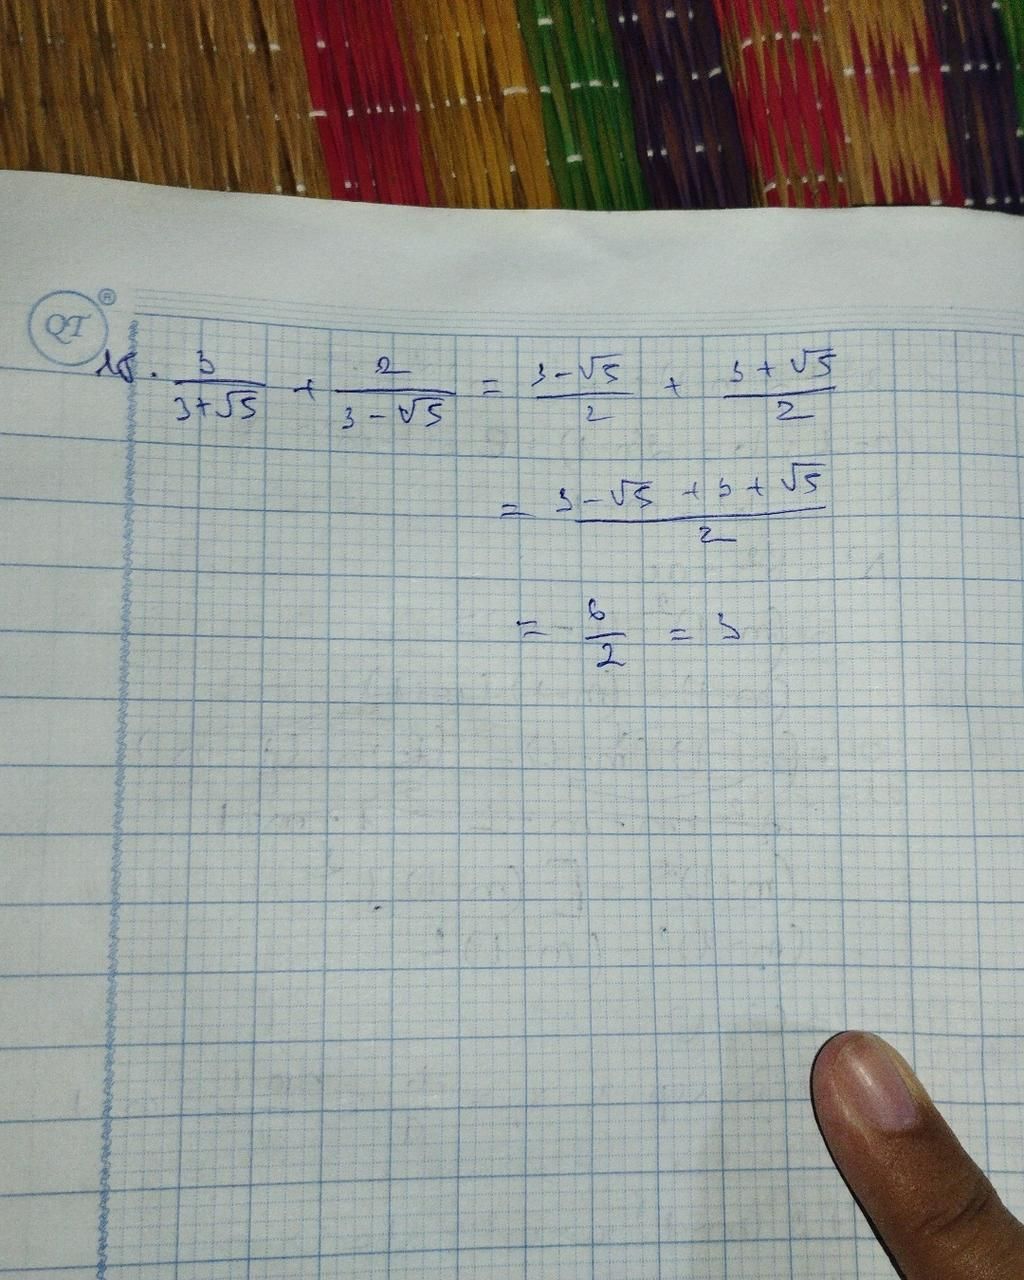 QT ®
18. 3/(3+√5) + 2/(3-√5) = (3-√5)/2 + (3+√5)/2
= (3-√5 + 3+√5)/2
= 6/2 = 3